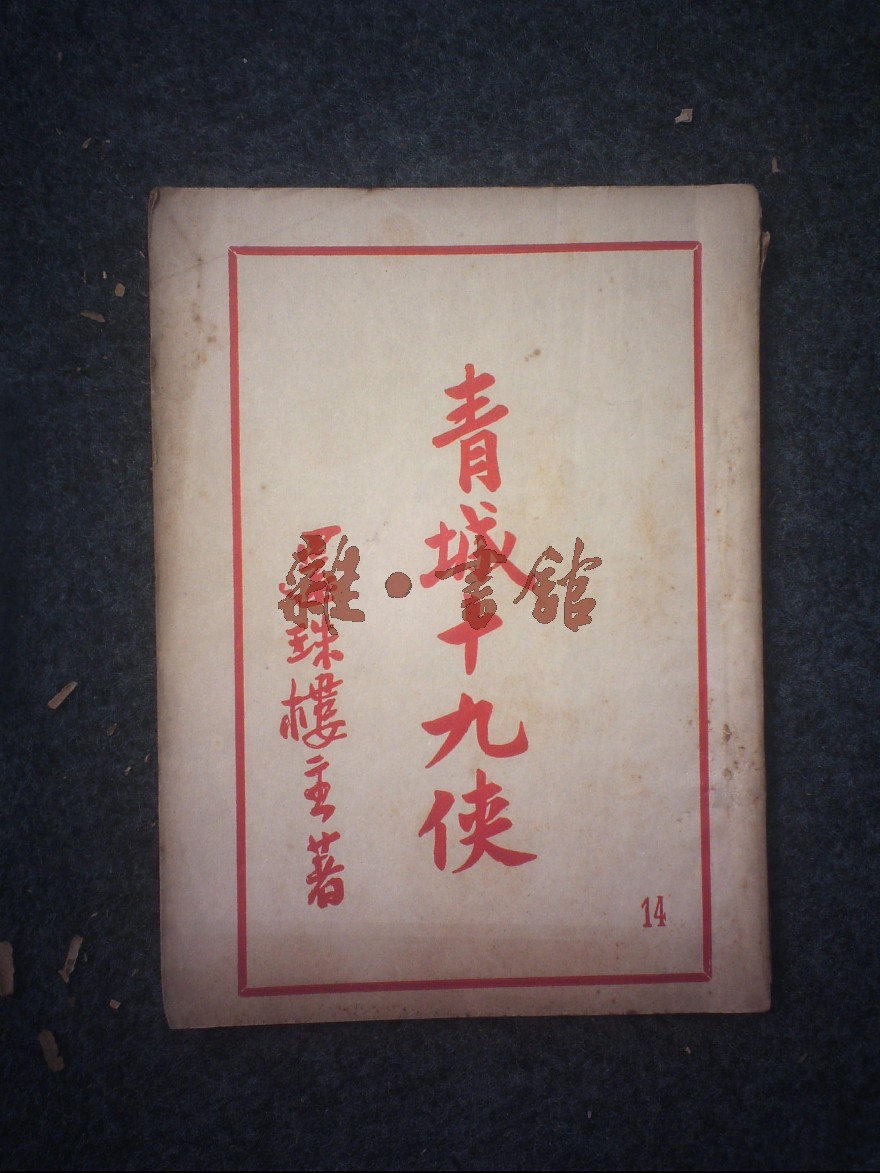 青城十九俠
還珠樓主著
14
雜·書館